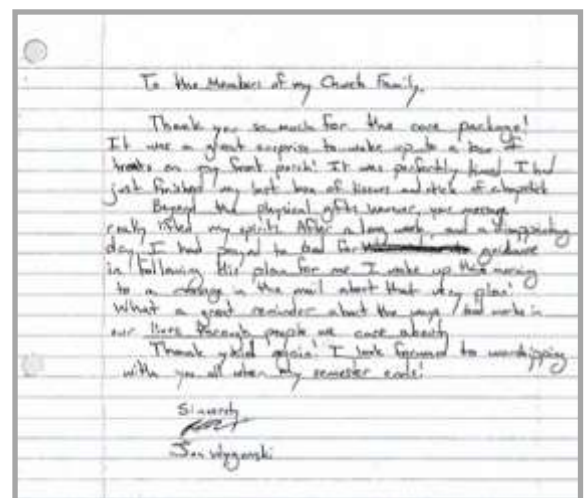 To the Members of my Church Family,
Thank you so much for the care package!
It was a great surprise to wake up to a box of
treats on my front porch! It was perfectly timed I had
just finished my last box of tissues and stick of chapstick
Beyond the physical gifts however, your message
really lifted my spirits. After a long week, and a disappointing
day, I had prayed to God for guidance
in following His plan for me I woke up this morning
to a message in the mail about that very plan!
What a great reminder about the ways God works in
our lives through people we care about
Thank you again! I look forward to worshipping
with you all when my semester ends!
Sincerely